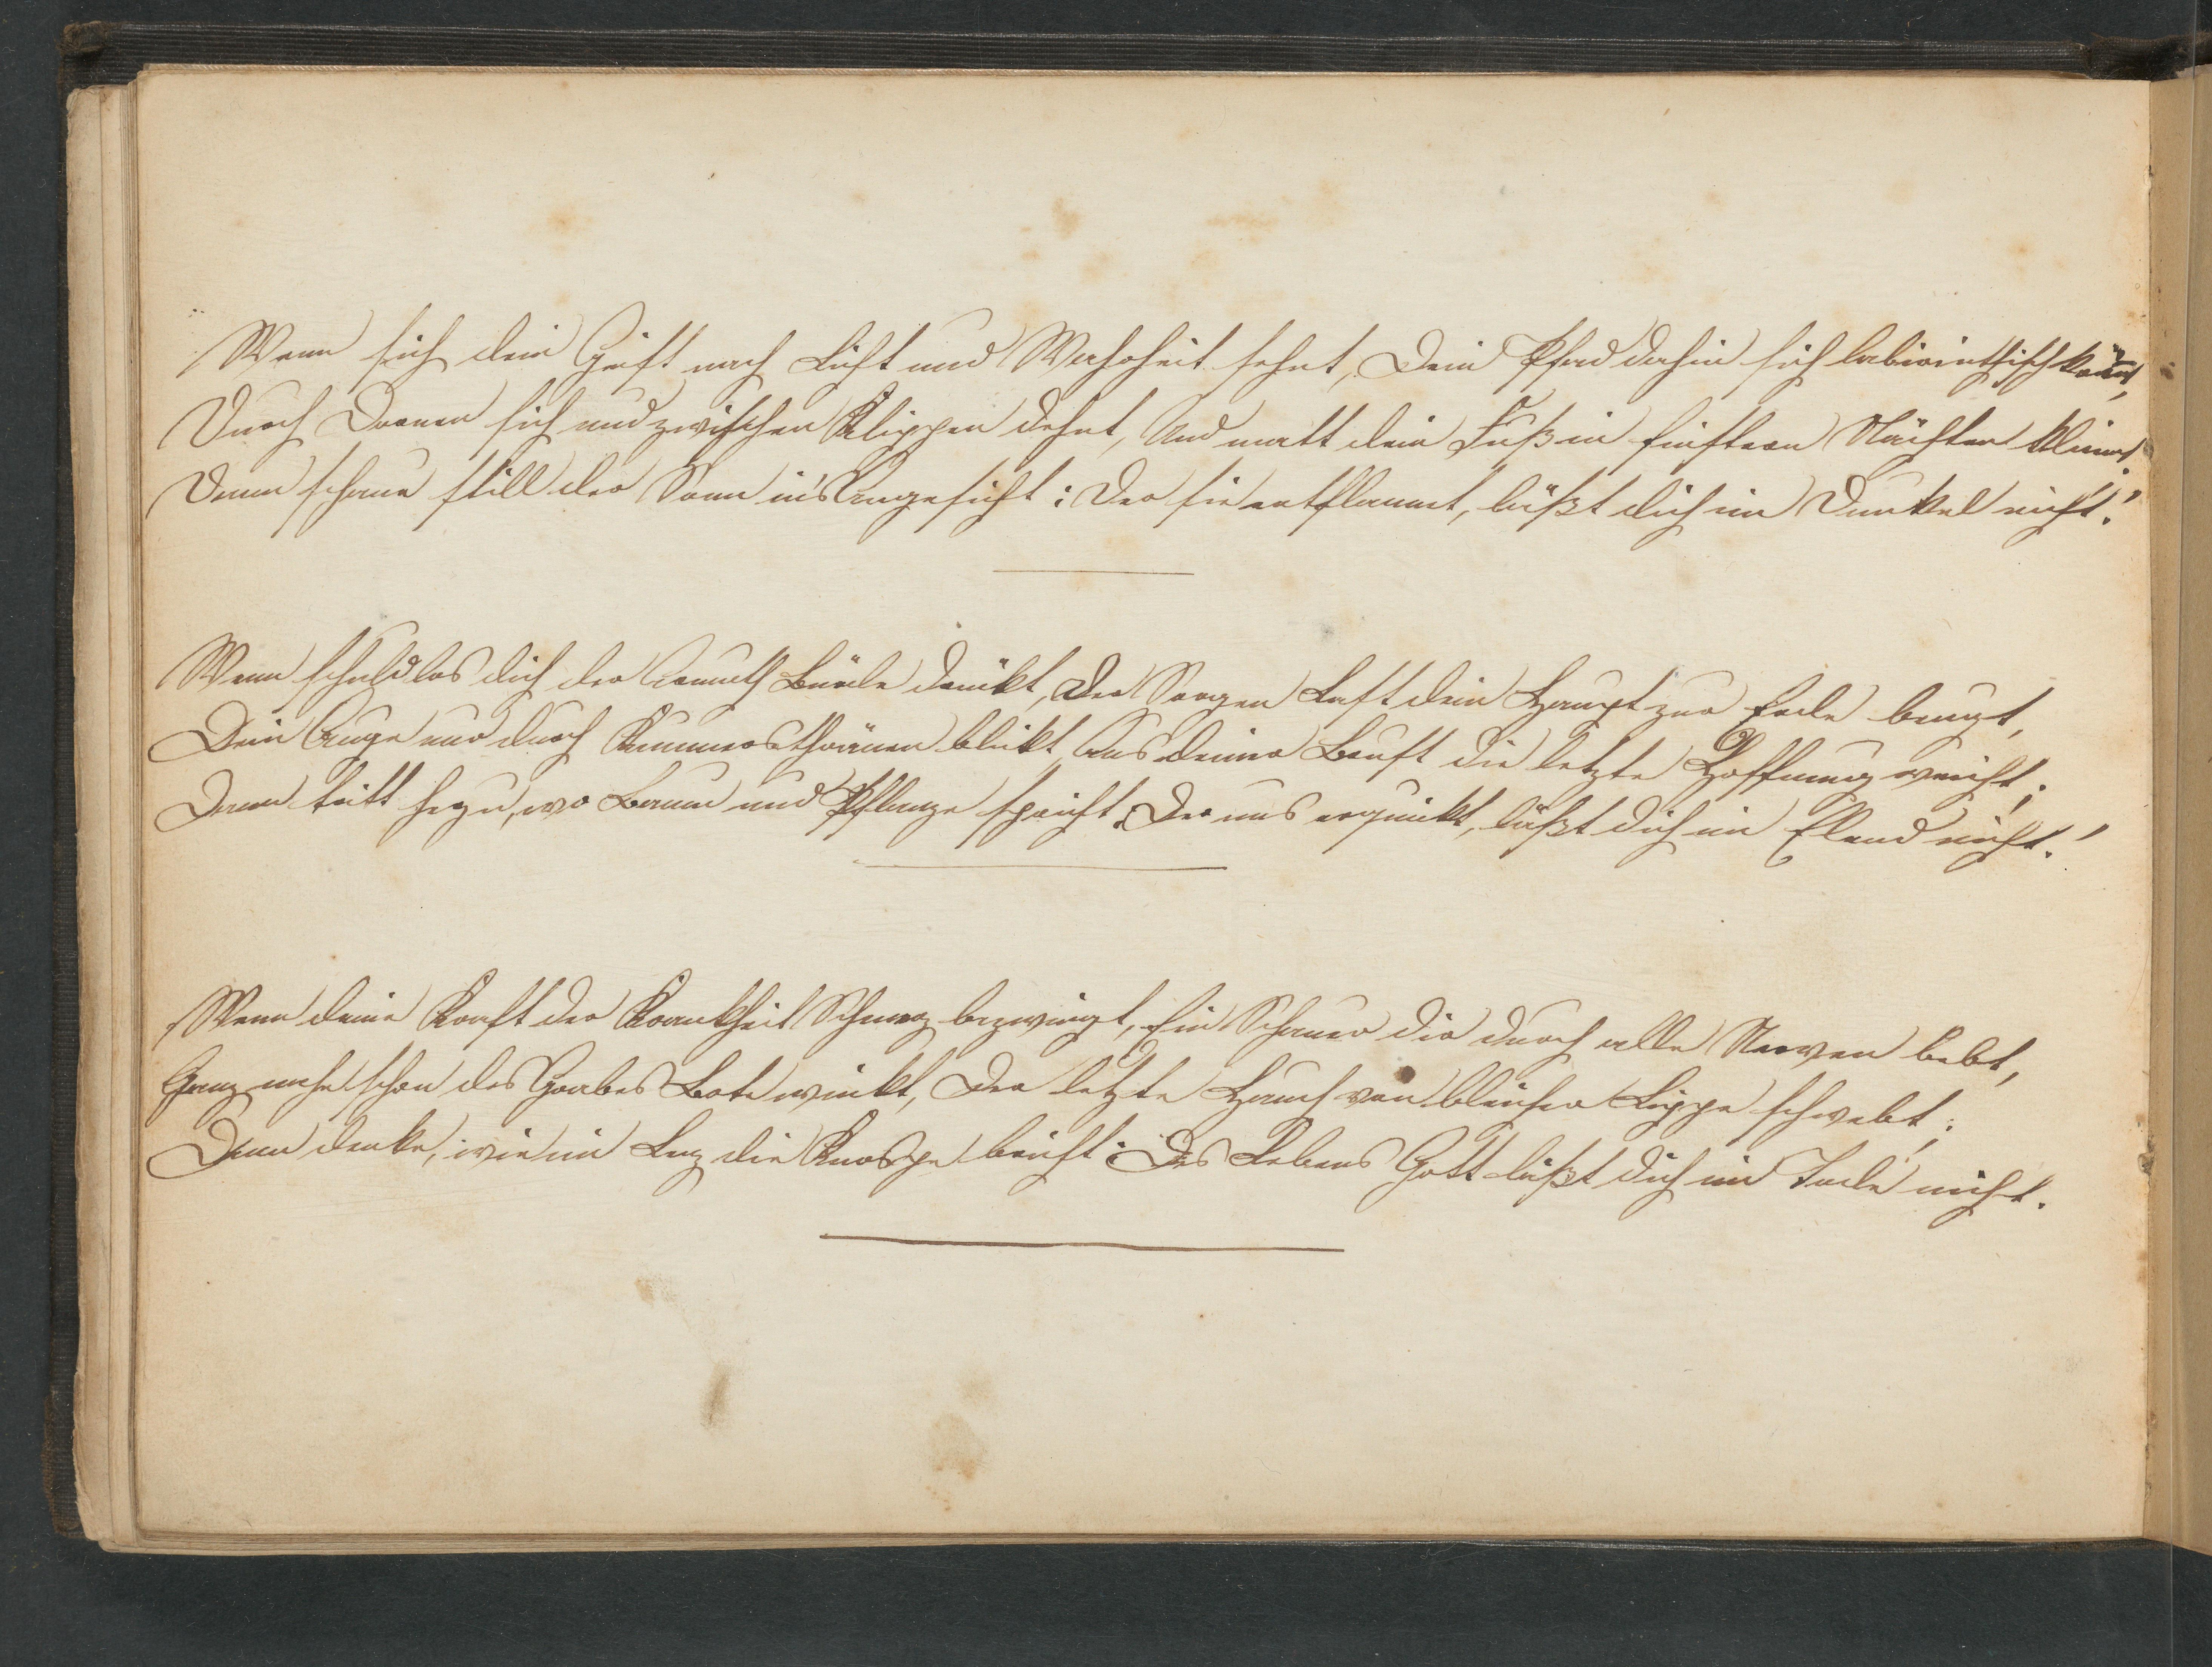 Wenn sich dein Geist nach Licht und Wahrheit sehnt, Dein Pfad dahin sich labirinthisch krümt,
Durch Dornen sich und zwischen Klippen dehnt, Und matt dein Fuß in finstern Nächten klimmt.
Dann schaue still der Sonn in's Angesicht: Der sie entflammt, läßt dich im Dunkel nicht!
Wenn schuldlos dich der Armuth Bürde drückt, Der Sorgen Last dein Haupt zur Erde beugt,
Dein Auge nur durch Kummersthränen blikt, Aus deiner Brust die letzte Hoffnung weicht;
Dann tritt hinzu, wo Baum und Pflanze spricht: Der uns erquikt, läßt dich im Elend nicht!
Wenn deine Kraft der Krankheit Schmerz bezwingt, Ein Schauer dir durch alle Nerven bebt,
Ganz nahe schon des Grabes Bote winkt, Der letzte Hauch von bleicher Lippe schwebt;
Dann denke, wie im Lenz die Knospe bricht: Des Lebens Gott läßt dich im Tode nicht.